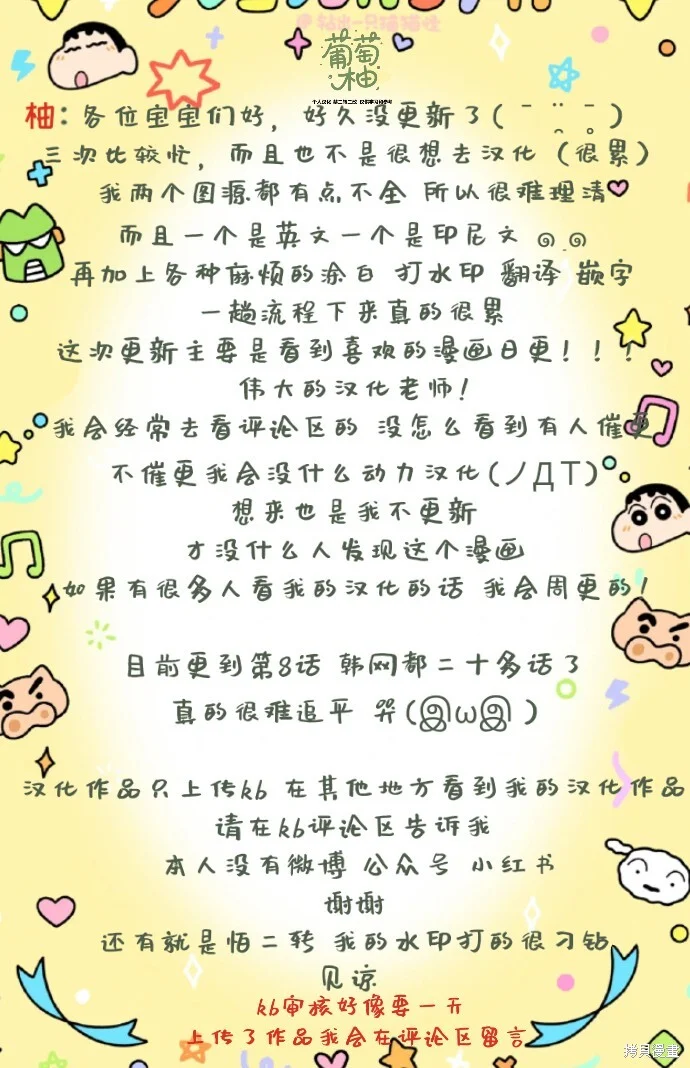 葡萄柚
个人汉化 禁二传二改 仅供学习和参考
柚：各位宝宝们好，好久没更新了(¯ ¨̯ ¯̥)
三次比较忙，而且也不是很想去汉化（很累）
我两个图源都有点不全 所以很难理清
而且一个是英文一个是印尼文 ๑.๑
再加上各种麻烦的涂白 打水印 翻译 嵌字
一趟流程下来真的很累
这次更新主要是看到喜欢的漫画日更！！！
伟大的汉化老师！
我会经常去看评论区的 没怎么看到有人催更
不催更我会没什么动力汉化(ノДT)
想来也是我不更新
才没什么人发现这个漫画
如果有很多人看我的汉化的话 我会周更的！
目前更到第8话 韩网都二十多话了
真的很难追平 哭(இωஇ )
汉化作品只上传kb 在其他地方看到我的汉化作品
请在kb评论区告诉我
本人没有微博 公众号 小红书
谢谢
还有就是怕二转 我的水印打的很刁钻
见谅
kb审核好像要一天
上传了作品我会在评论区留言
拷貝漫畫